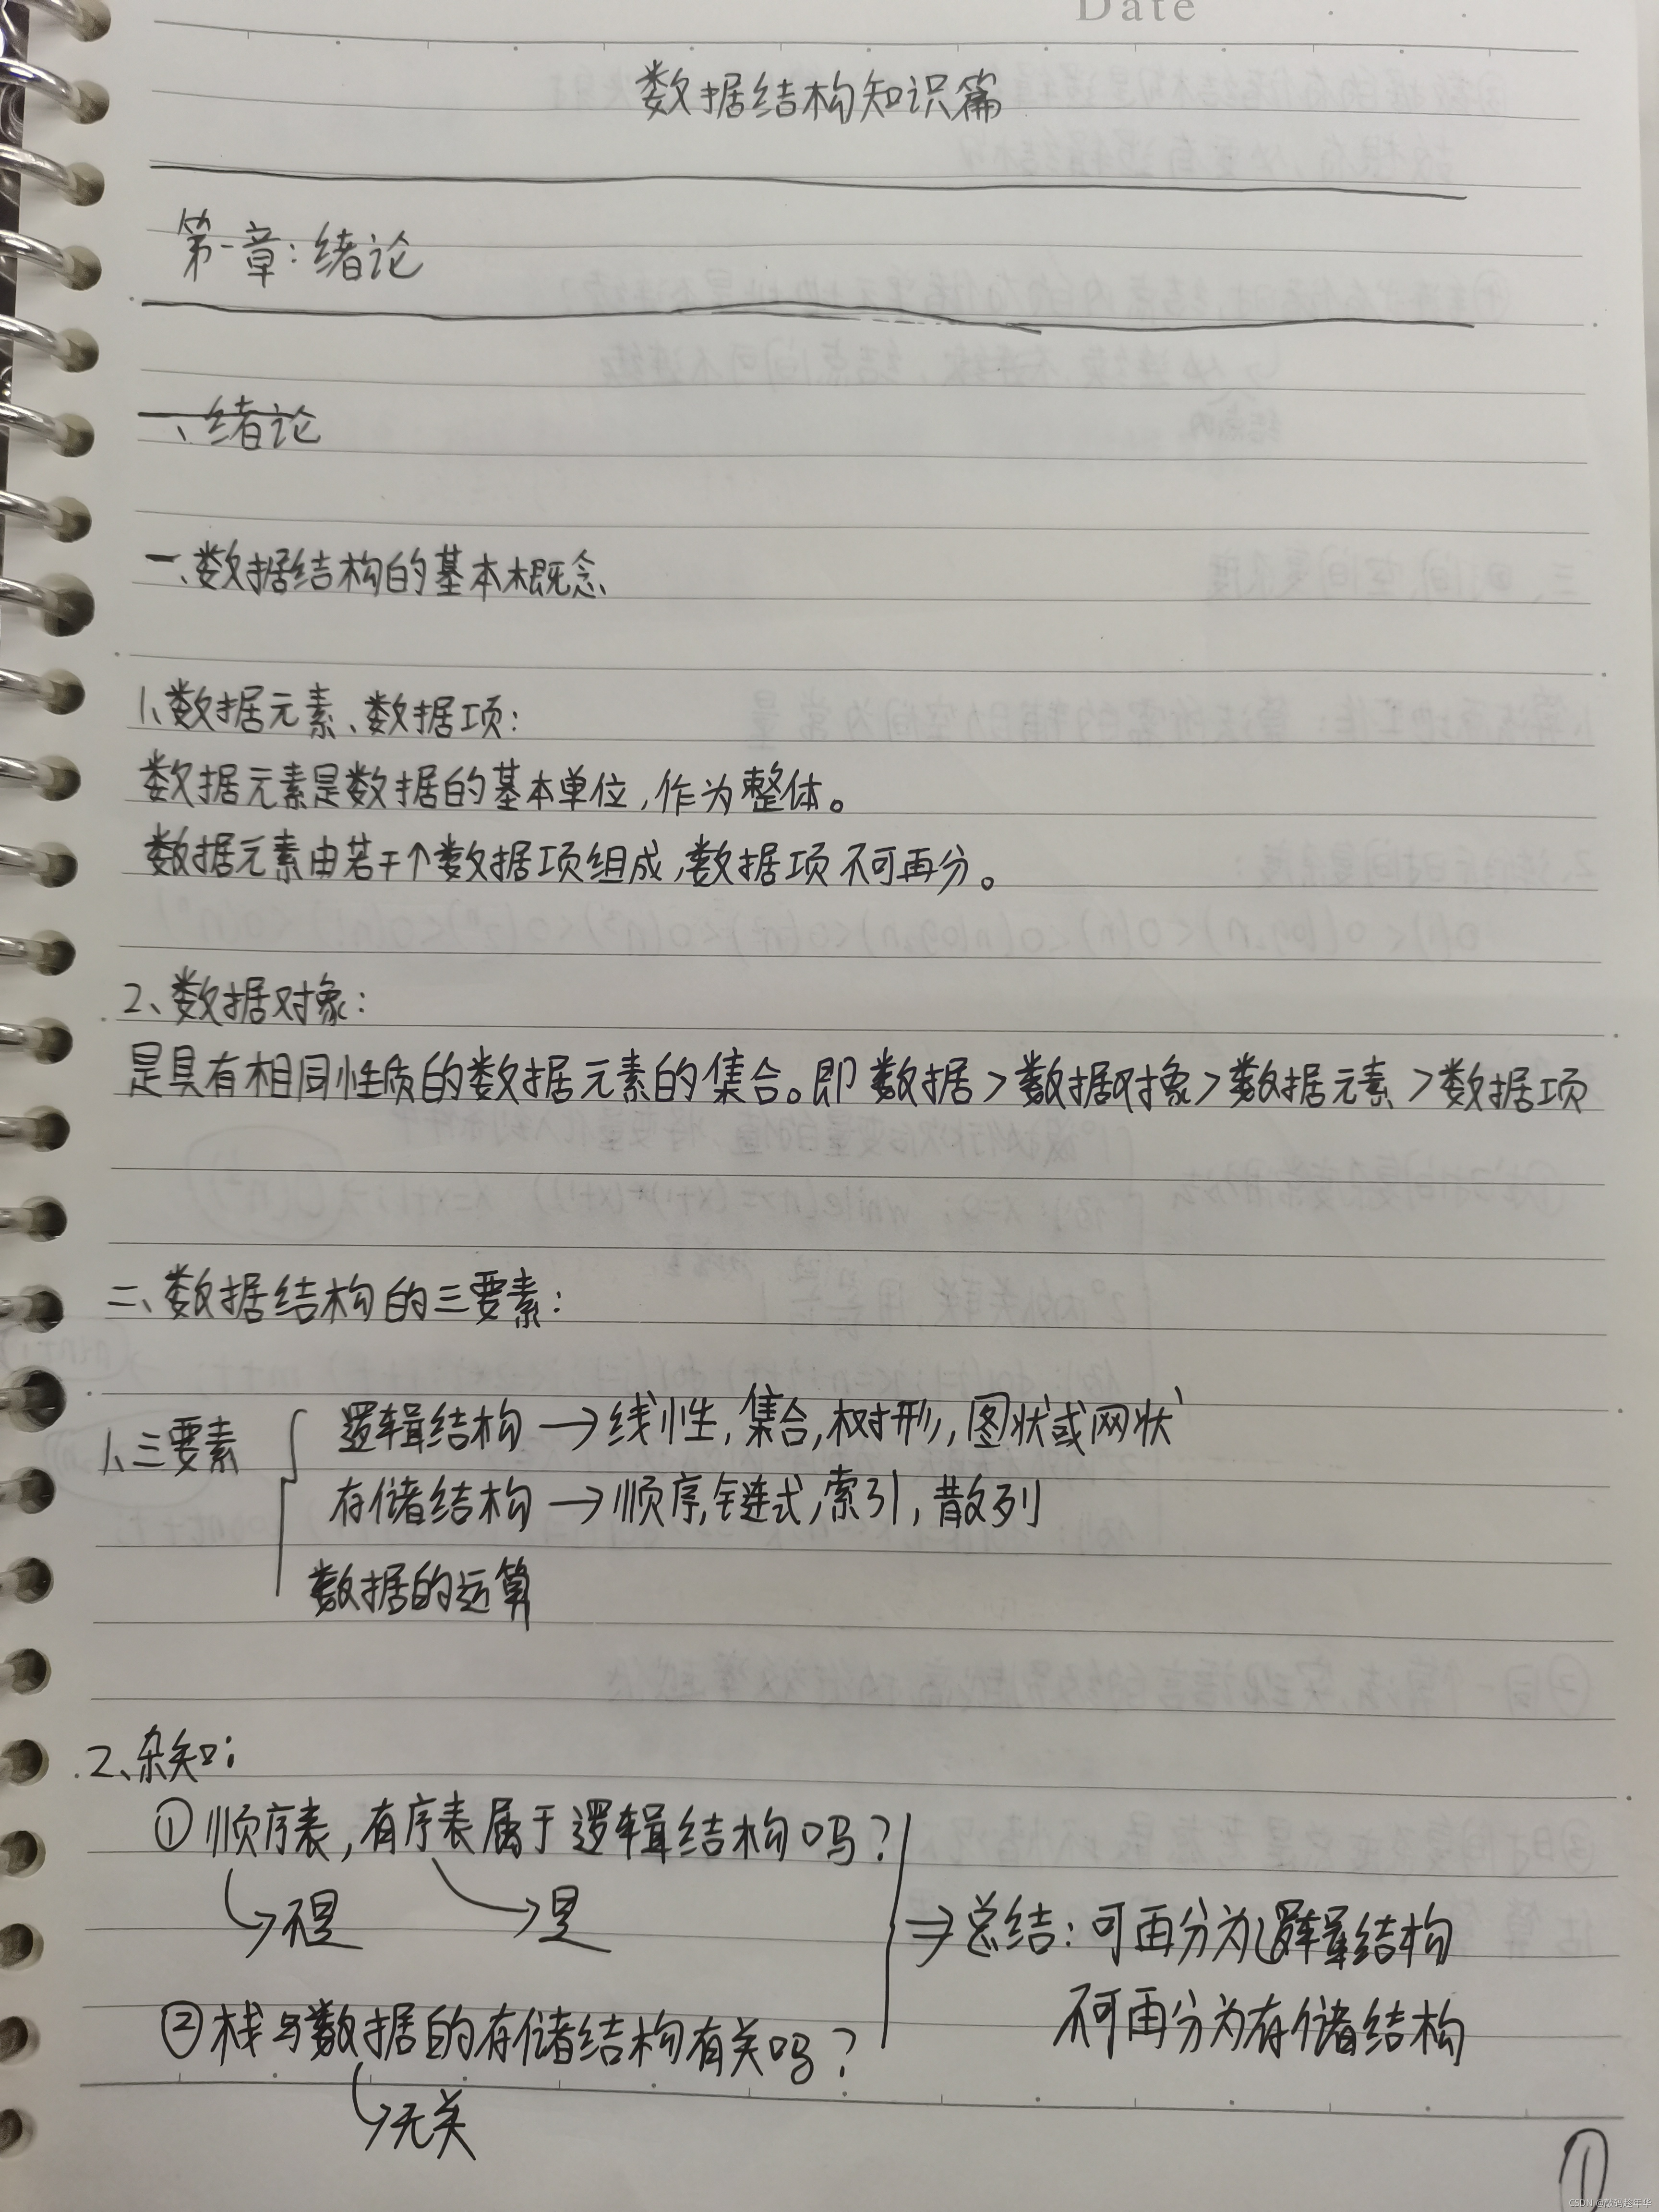 Date
数据结构知识篇
第一章：绪论
一、绪论
一、数据结构的基本概念
1、数据元素、数据项：
数据元素是数据的基本单位，作为整体。
数据元素由若干个数据项组成，数据项不可再分。
2、数据对象：
是具有相同性质的数据元素的集合。即 数据>数据对象>数据元素>数据项
二、数据结构的三要素：
1、三要素
逻辑结构→线性，集合，树形，图状或网状
存储结构→顺序，链式，索引，散列
数据的运算
2、杂知：
①顺序表，有序表属于逻辑结构吗？
↳不是 ↘是
⇒总结：可再分为逻辑结构
不可再分为存储结构
②栈与数据的存储结构有关吗？
↳无关
①
CSDN @敲码趁年华